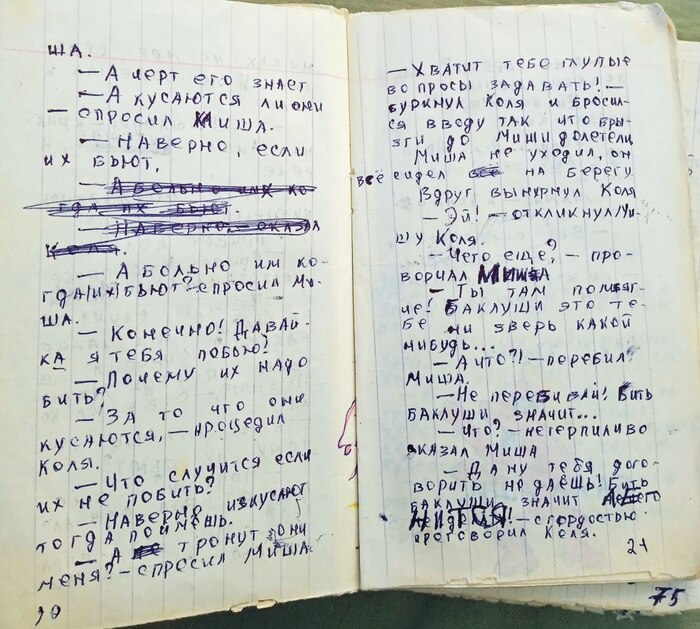 ША.
— А черт его знает
— А кусаются ли они
— спросил Миша.
— Наверно, если
их бьют.
— А больно им ко-
гда их бьют.
— Наверно, — сказал
Коля.
— А больно им ко-
гда их бьют? — спросил Ми-
ша.
— Конечно! Давай-
ка я тебя побью!
— Почему их надо
бить?
— За то что они
кусаются, — процедил
Коля.
— Что случится если
их не побить?
— Наверно искусают
тогда поймёшь.
— А тронут они
меня? — спросил Миша
20
— Хватит тебе глупые
вопросы задавать! —
буркнул Коля и бросил-
ся вводу так что бры-
зги до Миши долетели
Миша не уходил, он
всё сидел всё на берегу
Вдруг вынурнул Коля
— Эй! — откликнул Ми-
шу Коля.
— Чего еще? — про-
ворчал Миша
— Ты там полегче! Баклуши это те-
бе ни зверь какой
нибудь...
— А что?! — перебил
Миша.
— Не перебивай! Бить
баклуши значит...
— Что? — нетерпиливо
сказал Миша
— Да ну тебя дого-
ворить не даёшь! Бить
баклуши значит
— сгордостью
проговорил Коля.
21
75